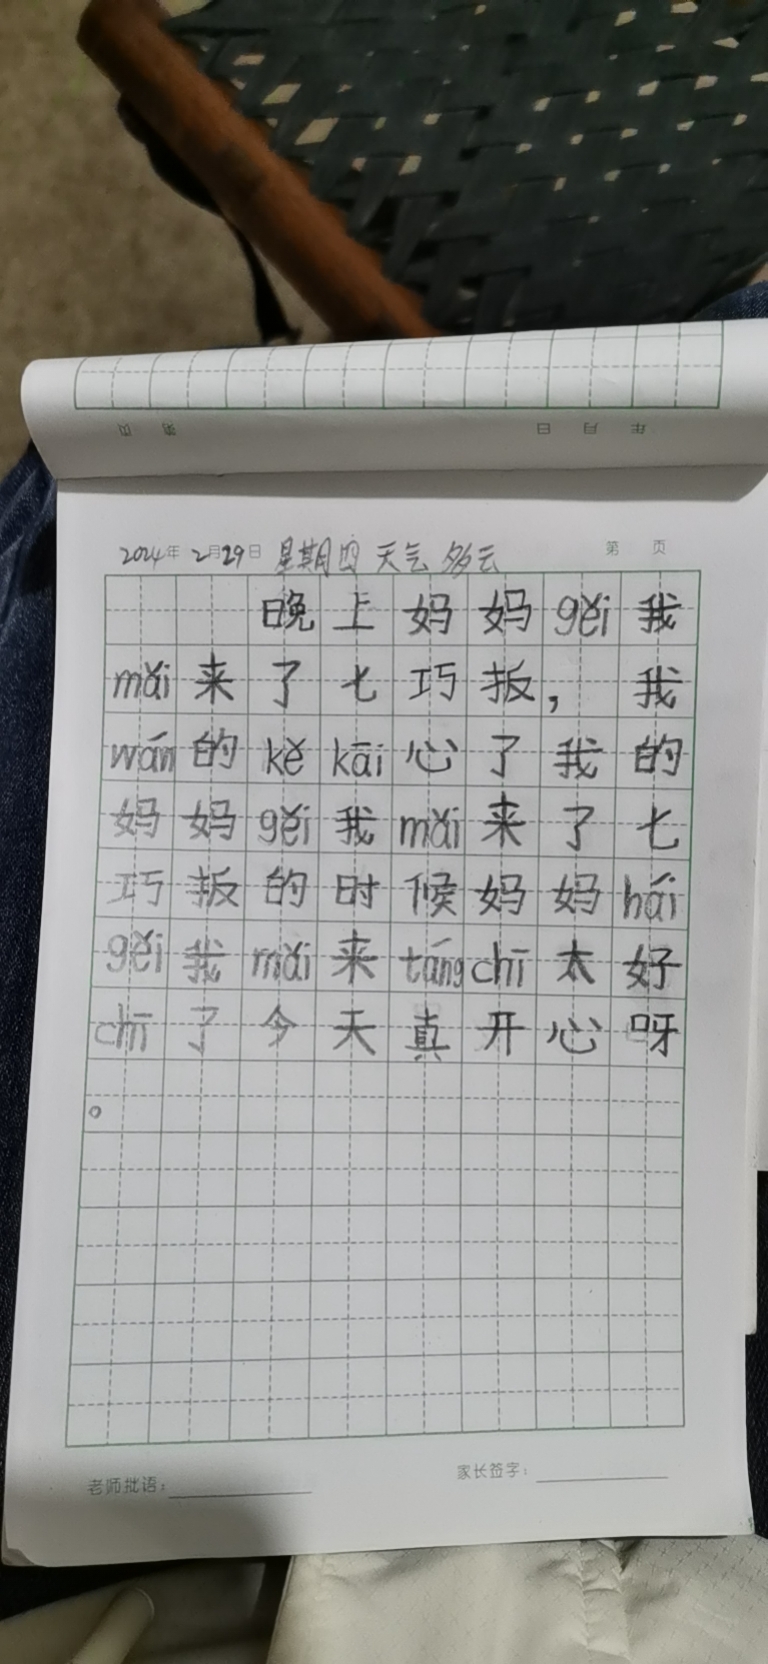 页 第 日 月 年
2024年 2月29日 星期四 天气 多云 第 页
晚上妈妈gěi我
mǎi来了七巧扳，我
wán的kě kāi心了我的
妈妈gěi我mǎi来了七
巧扳的时候妈妈hái
gěi我mǎi来táng chī太好
chī了今天真开心呀
。
老师批语：
家长签字：